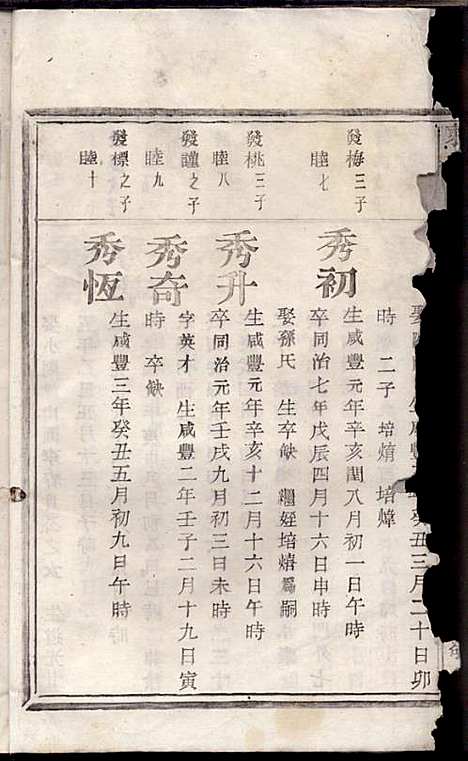 癸丑三月二十日卯
時 二子 培焴 培㷆
發梅三子
睦七
秀初
生咸豐元年辛亥閏八月初一日午時
卒同治七年戊辰四月十六日申時
娶孫氏 生卒缺 繼姪培熺爲嗣
發桃三子
睦八
秀升
生咸豐元年辛亥十二月十六日午時
卒同治元年壬戌九月初三日未時
發謹之子
睦九
秀奇
字英才 生咸豐二年壬子二月十九日寅
時 卒缺
發標之子
睦十
秀恆
生咸豐三年癸丑五月初九日午時